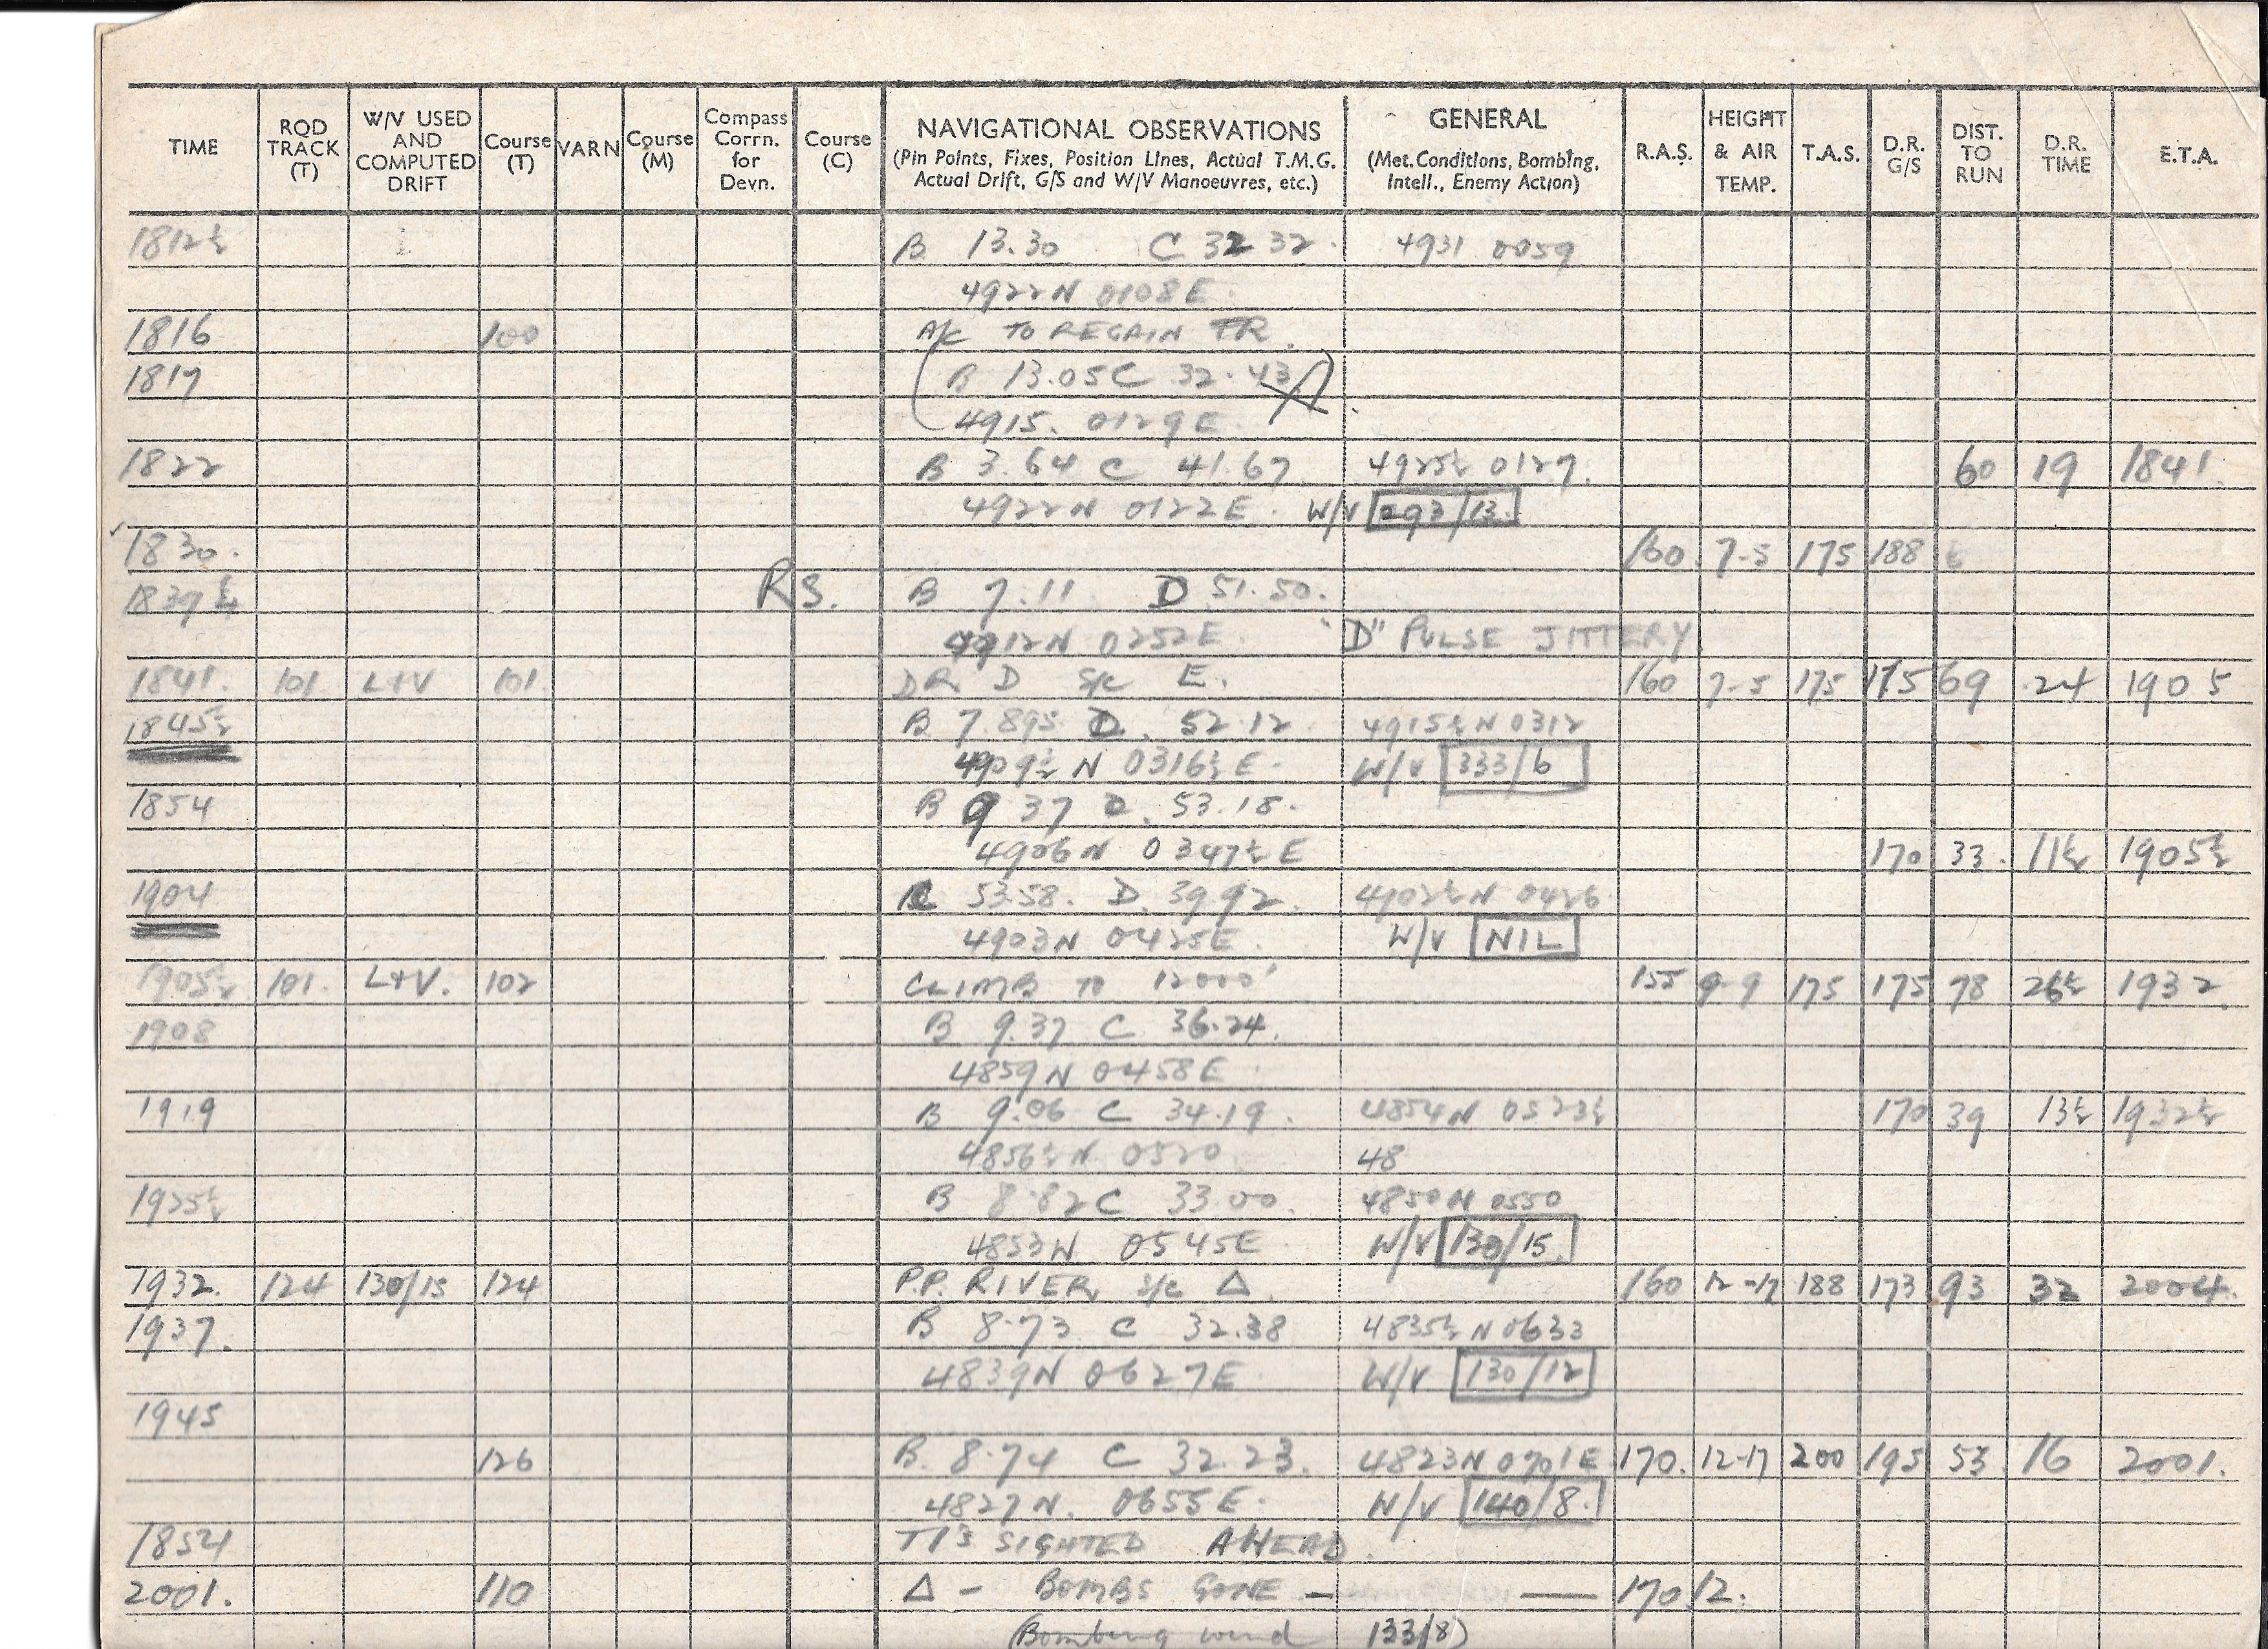 TIME RQD TRACK (T) W/V USED AND COMPUTED DRIFT Course (T) VARN Course (M) Compass Corrn. for Devn. Course (C) NAVIGATIONAL OBSERVATIONS (Pin Points, Fixes, Position Lines, Actual T.M.G. Actual Drift, G/S and W/V Manoeuvres, etc.) GENERAL (Met.Conditions, Bombing, Intell., Enemy Action) R.A.S. HEIGHT & AIR TEMP. T.A.S. D.R. G/S DIST. TO RUN D.R. TIME E.T.A.
1812½ B 13.30 C 32 32. 4931 0059
4922N 0108E.
1816 100 A/C TO REGAIN TR.
1817 (B 13.05 C 32.43)
4915. 0129E
1822 B 3.64 C 41.67 4925½ 0127. 60 19 1841.
4922N 0122E. W/V 293/13.
1830. 160 7-5 175 188
1839¾ RS. B 7.11 D 51.50.
4912N 0252E. "D" PULSE JITTERY
1841. 101 L+V 101 DR D S/C E. 160 7-5 175 175 69 24 1905
1845½ B 7.895 D. 52.12 4915½N 0312
4909½N 0316½E. W/V 333/6
1854 B 9 37 D. 53.18.
4906N 0347½E 170 33. 11½ 1905½
1904 C 53.58. D. 39.92. 4902½N 0426
4903N 0425E. W/V NIL
1905½ 101. L+V. 102 CLIMB TO 12000' 155 9-9 175 175 78 26½ 1932.
1908 B 9.37 C 36.24.
4859N 0458E.
1919 B 9.06 C 34.19. 4854N 0523½ 170 39 13½ 1932½
4856½N 0520 48
1925½ B 8.82 C 33.00. 4850N 0550
4853N 0545E W/V 130/15.
1932. 124 130/15 124 P.P. RIVER S/C △. 160 12-17 188 173 93 32 2004.
1937. B 8.73 C 32.38 4835½N 0633
4839N 0627E W/V 130/12
1945
126 B. 8.74 C 32.23. 4823N 0701E 170. 12-17 200 195 53 16 2001.
4827N. 0655E. W/V 140/8.
1854 TI's SIGHTED AHEAD.
2001. 110 △ - BOMBS GONE - — 170 12.
(Bombing wind 133/8)